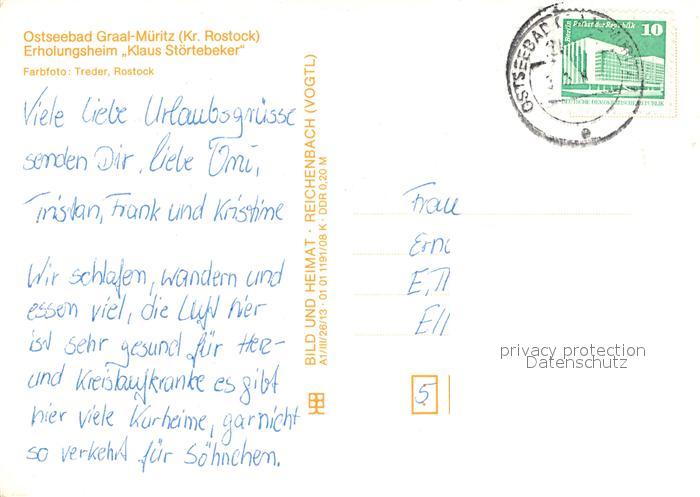 Ostseebad Graal-Müritz (Kr. Rostock)
Erholungsheim „Klaus Störtebeker"
Farbfoto: Treder, Rostock
Viele liebe Urlaubsgrüsse
senden Dir, liebe Omi,
Tristan, Frank und Kristine
Wir schlafen, wandern und
essen viel, die Luft hier
ist sehr gesund für Herz-
und Kreislaufkranke es gibt
hier viele Kurheime, gar nicht
so verkehrt für Söhnchen.
BILD UND HEIMAT · REICHENBACH (VOGTL)
A1/III/26/13 · 01 01 1191/08 K · DDR 0,20 M
OSTSEEBAD
Berlin Palast der Republik
10
DEUTSCHE DEMOKRATISCHE REPUBLIK
e
Frau
privacy protection
Datenschutz
5